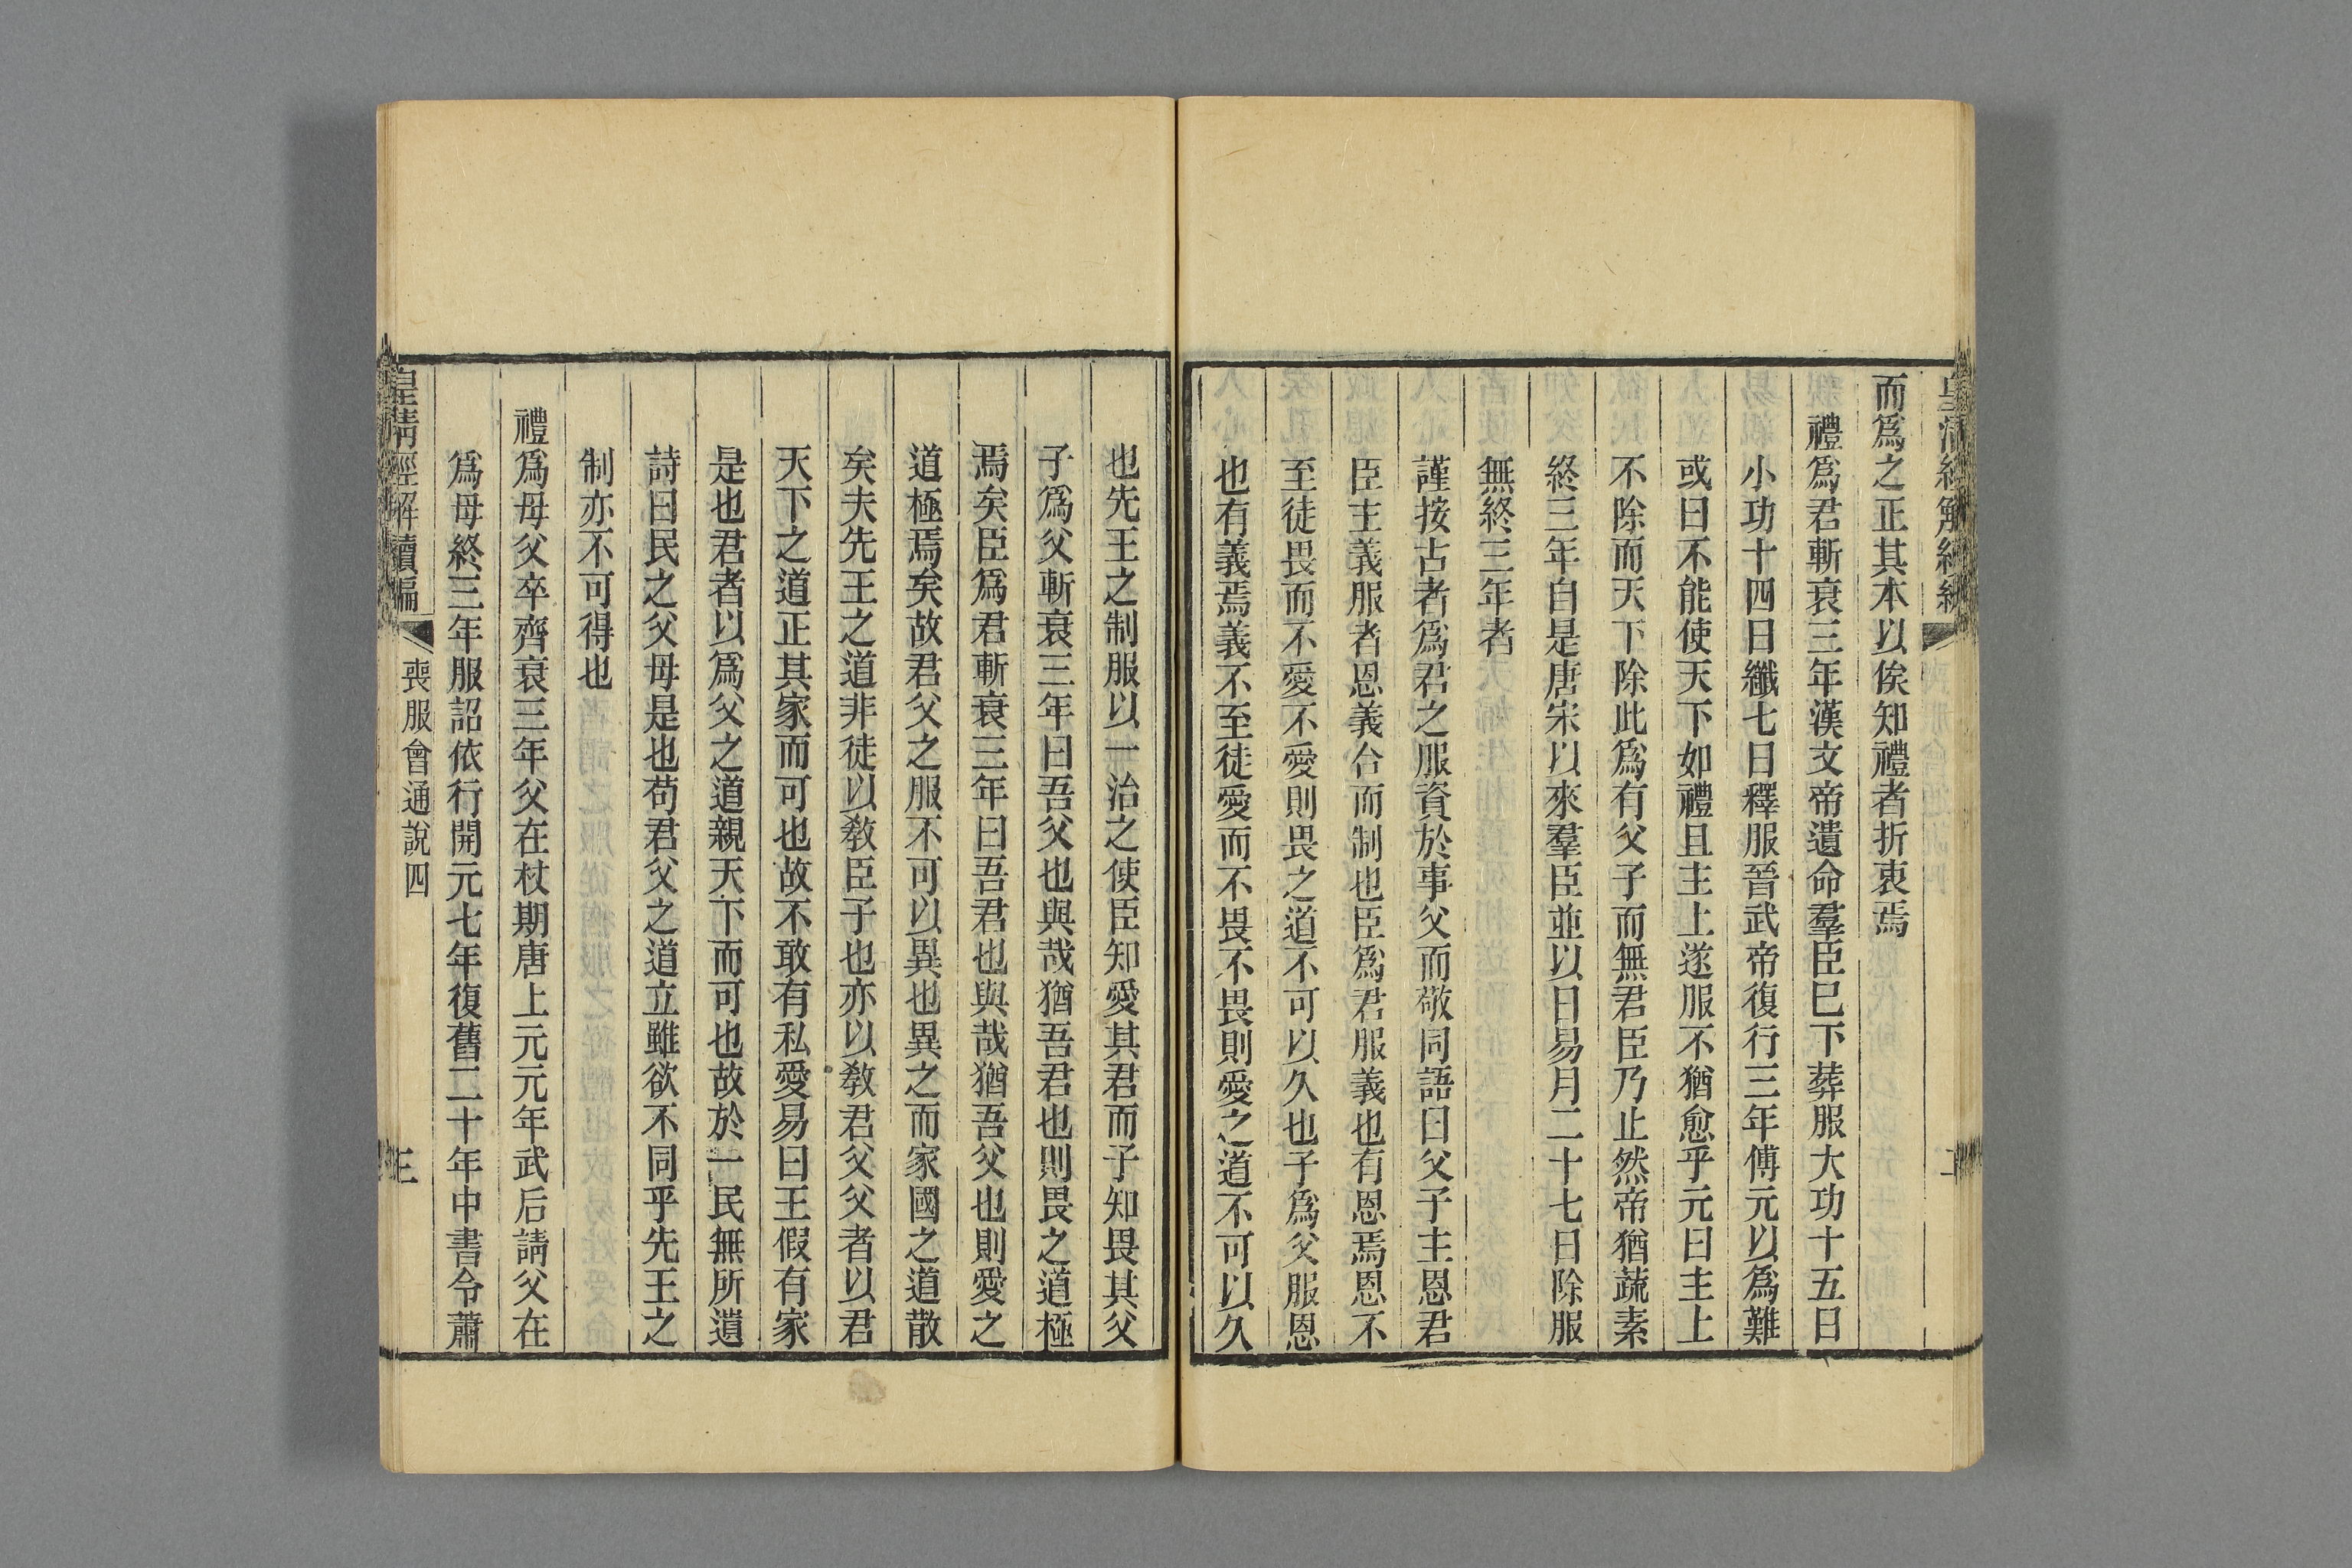 而爲之正其本以俟知禮者折衷焉
禮爲君斬衰三年漢文帝遺命羣臣巳下葬服大功十五日
小功十四日纖七日釋服晉武帝復行三年傅元以爲難
或曰不能使天下如禮且主上遂服不猶愈乎元曰主上
不除而天下除此爲有父子而無君臣乃止然帝猶蔬素
終三年自是唐宋以來羣臣並以日易月二十七日除服
無終三年者
謹按古者爲君之服資於事父而敬同語曰父子主恩君
臣主義服者恩義合而制也臣爲君服義也有恩焉恩不
至徒畏而不愛不愛則畏之道不可以久也子爲父服恩
也有義焉義不至徒愛而不畏不畏則愛之道不可以久
也先王之制服以一治之使臣知愛其君而子知畏其父
子爲父斬衰三年曰吾父也與哉猶吾君也則畏之道極
焉矣臣爲君斬衰三年曰吾君也與哉猶吾父也則愛之
道極焉矣故君父之服不可以異也異之而家國之道散
矣夫先王之道非徒以敎臣子也亦以敎君父父者以君
天下之道正其家而可也故不敢有私愛易曰王假有家
是也君者以爲父之道親天下而可也故於一民無所遺
詩曰民之父母是也苟君父之道立雖欲不同乎先王之
制亦不可得也
禮爲母父卒齊衰三年父在杖期唐上元元年武后請父在
爲母終三年服詔依行開元七年復舊二十年中書令蕭
皇淸經解續編
喪服會通說四
三